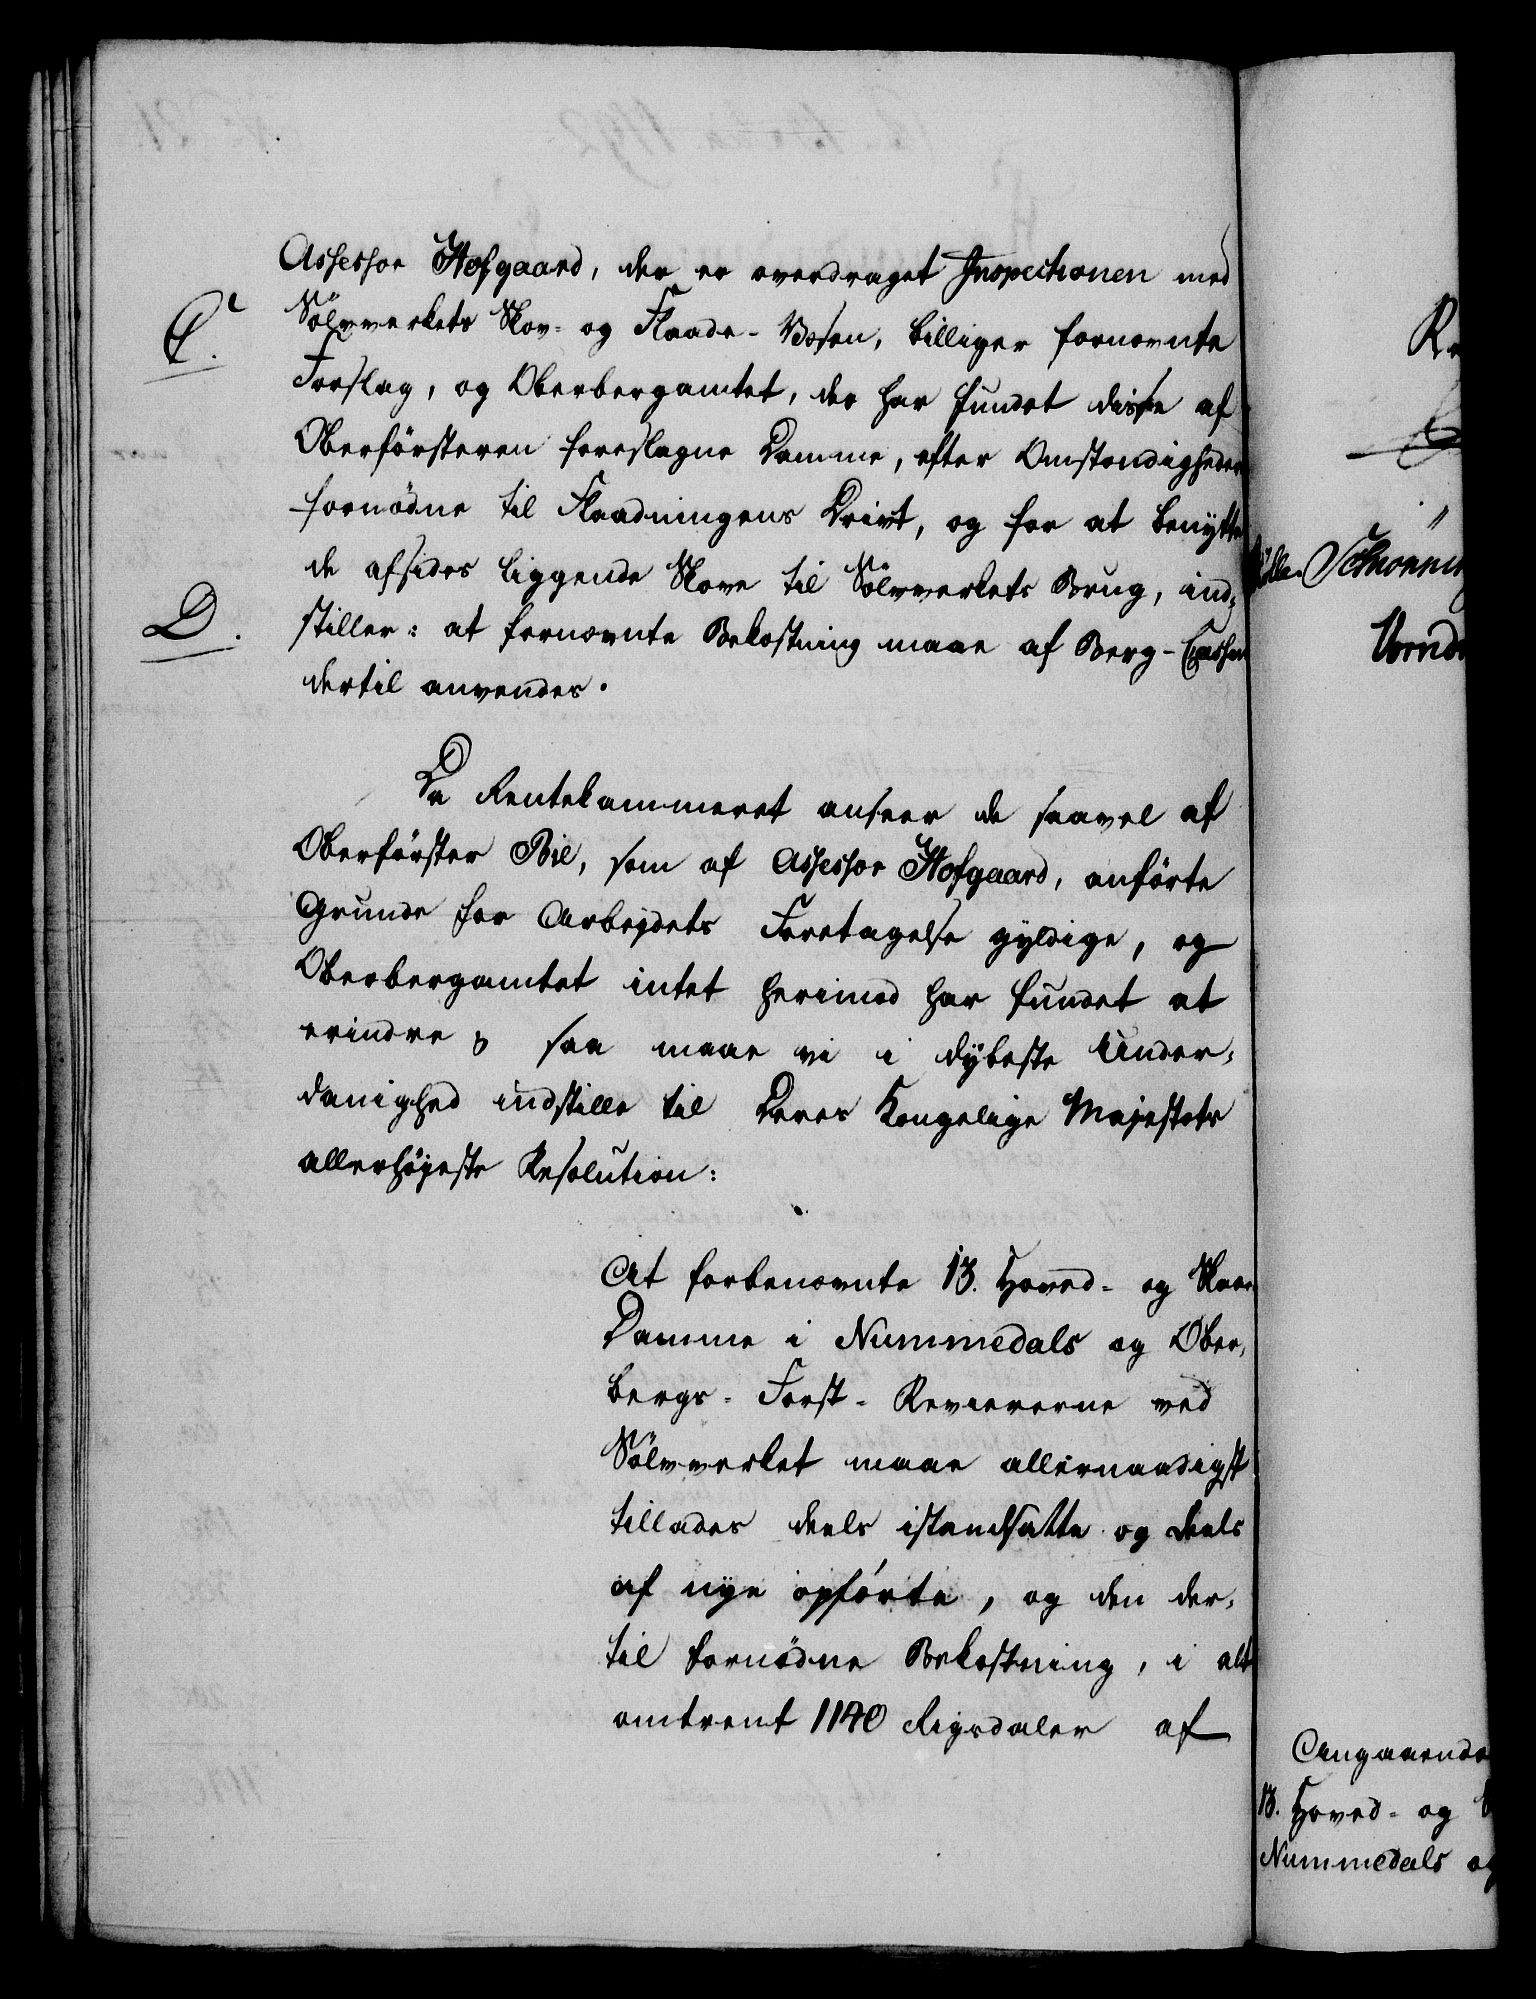 Assessor Hofgaard, der er overdraget Inspectionen med
C.
Sølvverkets Skov- og Flaade-Væsen, billiger fornævnte
Forslag, og Oberbergamtet, der har fundet disse af
Oberførsteren foreslagne Damme, efter Omstændigheder
fornødne til Flaadningens Drivt, og for at benytte
de afsides liggende Skove til Sølvverkets Brug, ind-
D.
stiller: at fornævnte Bekostning maae af Berg-Cassen
dertil anvendes.
Da Rentekammeret anseer de saavel af
Oberførster Bie, som af Assessor Hofgaard, anførte
Grunde for Arbejdets Foretagelse gyldige, og
Oberbergamtet intet herimod har fundet at
erindre; saa maae vi i dybeste Under-
danighed indstille til Deres Kongelige Majestæts
allerhøjeste Resolution:
At forbenævnte 13. Hoved- og Skaar-
Damme i Nummedals og Ober-
bergs-Forst-Reviererne ved
Sølvverket maae allernaadigst
tillades deels istandsatte og deels
af nye opførte, og den der-
til fornødne Bekostning, i alt
omtrent 1140 Rigsdaler af
Angaaende
13. Hoved- og
Nummedals og